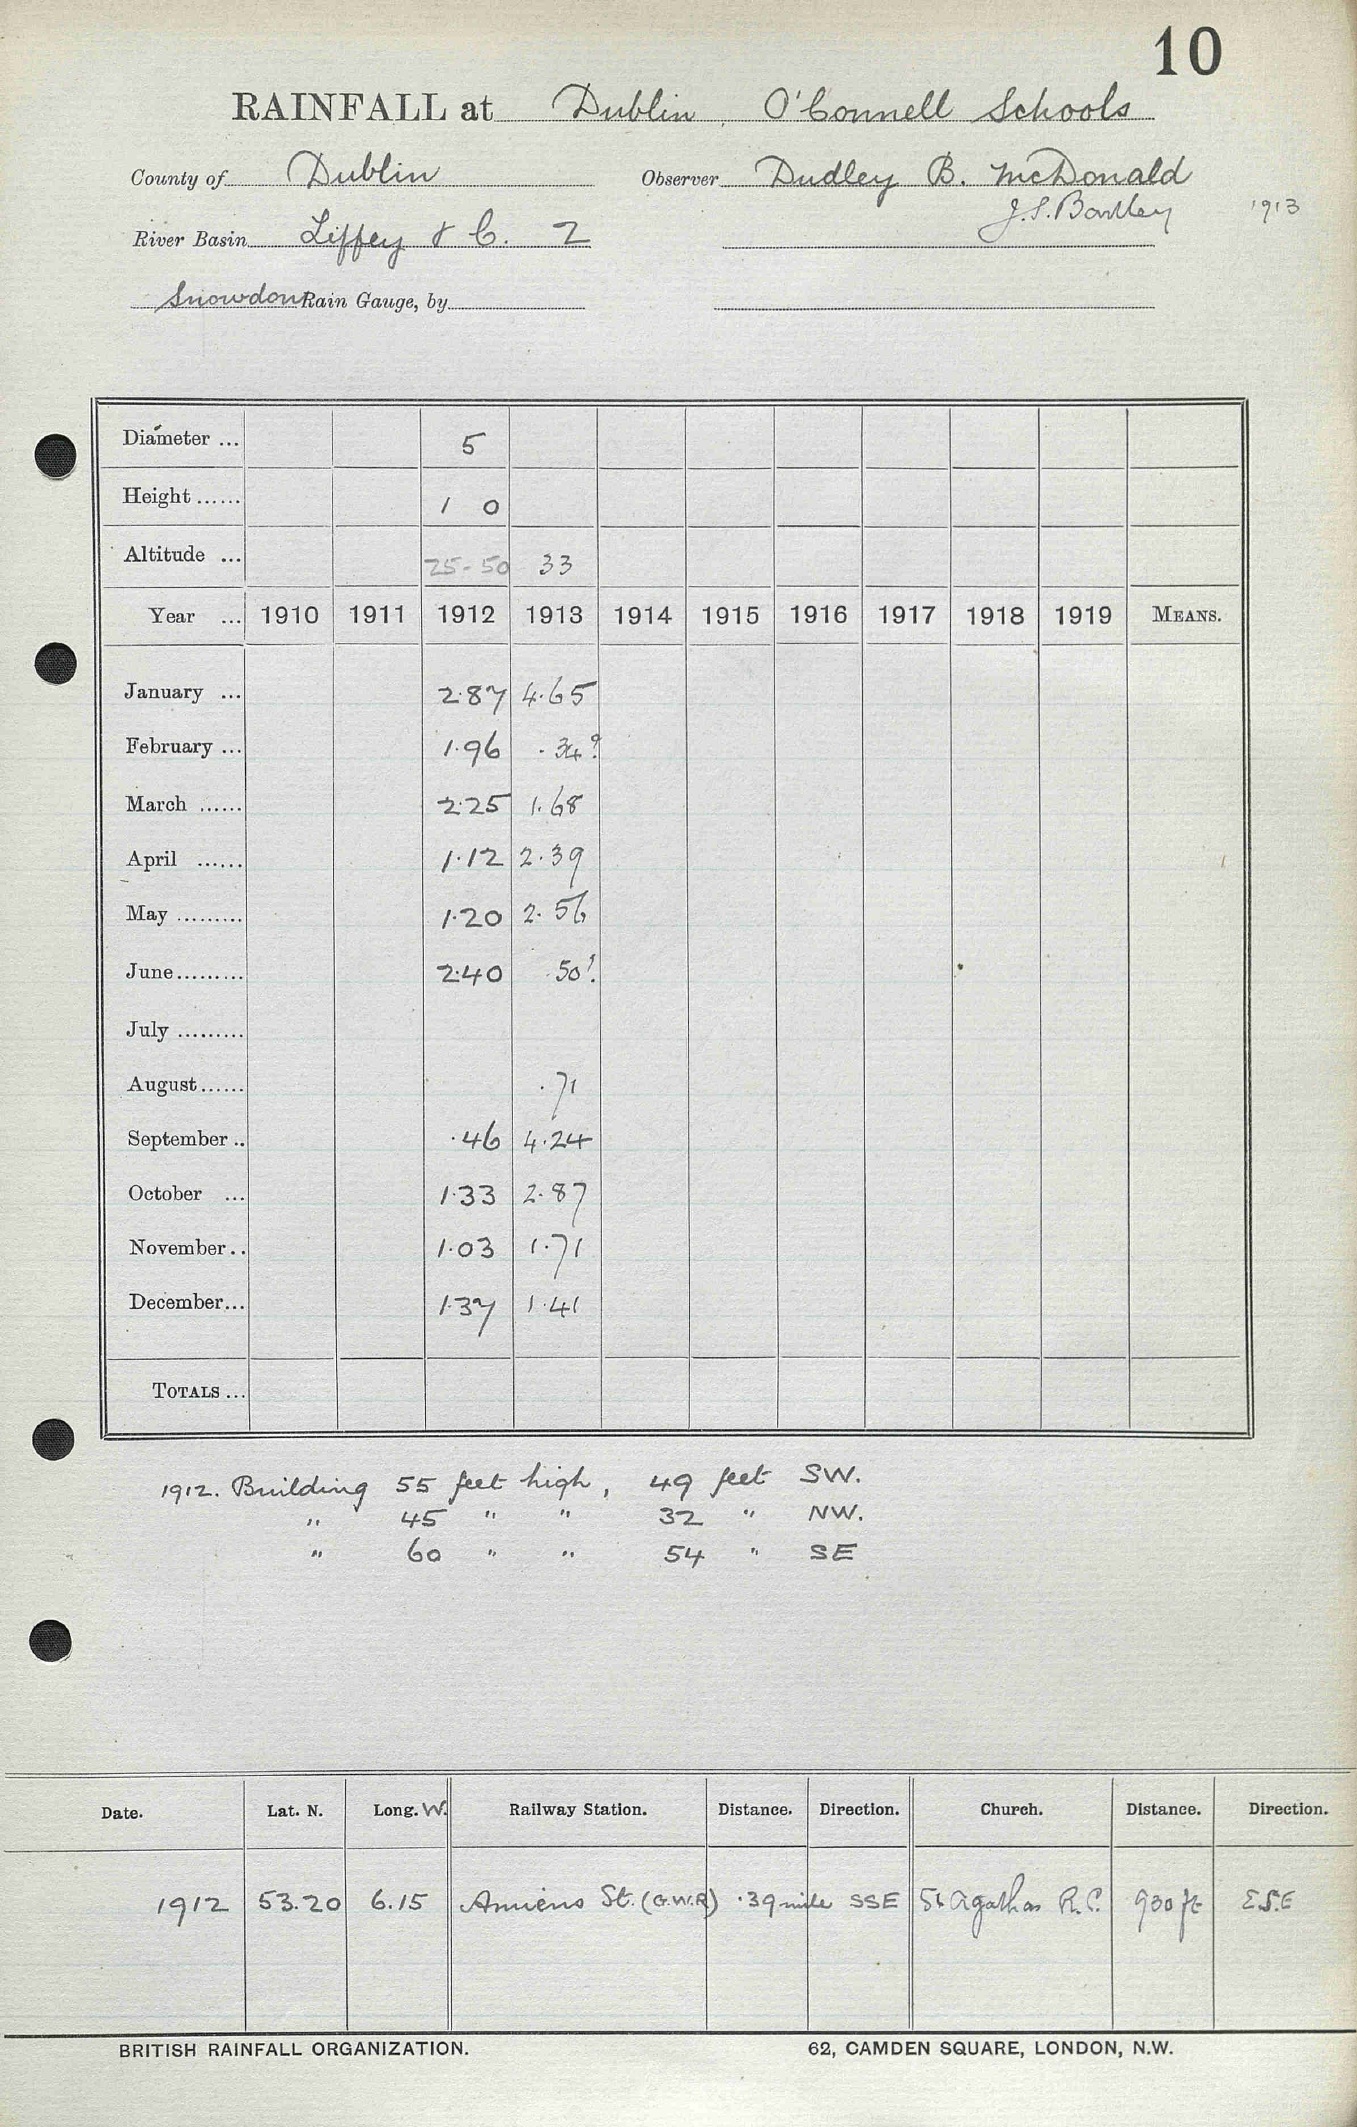 10
RAINFALL at Dublin, O'Connell Schools
County of Dublin Observer Dudley B. McDonald
J.S. Bartley 1913
River Basin Liffey & C. 2
Snowdon Rain Gauge, by
Diameter ... 5
Height ...... 1 0
Altitude ... 25-50 33
Year ... 1910 1911 1912 1913 1914 1915 1916 1917 1918 1919 MEANS.
January ... 2.87 4.65
February ... 1.96 .34?
March ...... 2.25 1.68
April ...... 1.12 2.39
May ......... 1.20 2.56
June......... 2.40 .50?
July .........
August...... .71
September .. .46 4.24
October ... 1.33 2.87
November .. 1.03 1.71
December... 1.37 1.41
TOTALS ...
1912. Building 55 feet high, 49 feet SW.
" 45 " " 32 " NW.
" 60 " " 54 " SE
Date. Lat. N. Long. W. Railway Station. Distance. Direction. Church. Distance. Direction.
1912 53.20 6.15 Amiens St. (G.W.R) .39 mile SSE St Agathas R.C. 930 ft E.S.E
BRITISH RAINFALL ORGANIZATION. 62, CAMDEN SQUARE, LONDON, N.W.